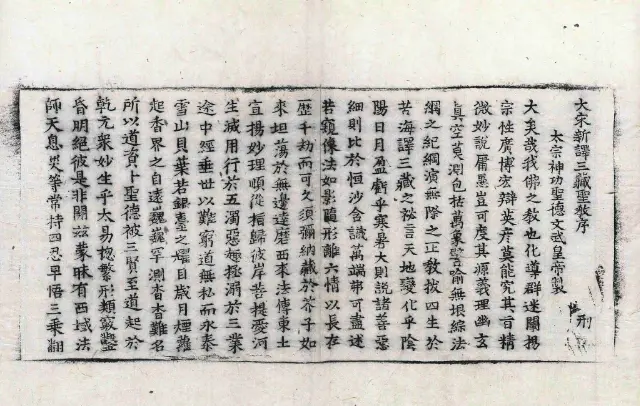 大宋新譯三藏聖教序
太宗神功聖德文武皇帝製
大矣哉我佛之教也化導群迷闡揚
宗性廣博宏辯英彥莫能究其旨精
微妙說庸愚豈可度其源義理幽玄
真空莫測包括萬象譬喻無垠綜法
網之紀綱演無際之正教拔四生於
苦海譯三藏之祕言天地變化乎陰
陽日月盈虧乎寒暑大則說諸善惡
細則比於恒沙含識萬端弗可盡述
若窺像法如影隨形離六情以長在
歷千劫而可久須彌納藏於芥子如
來坦蕩於無邊達磨西來法傳東土
宣揚妙理順從指歸彼岸菩提愛河
生滅用行於五濁惡趣拯溺於三業
途中經垂世以難窮道無私而永泰
雪山貝葉若銀臺之耀目歲月煙蘿
起香界之自遠巍巍罕測杳杳難名
所以道資十聖德被三賢至道起於
乾元衆妙生乎太易揔繫形類竅鑿
昏明絕彼是非開茲蒙昧有西域法
師天息灾等常持四忍早悟三乘翻
刑